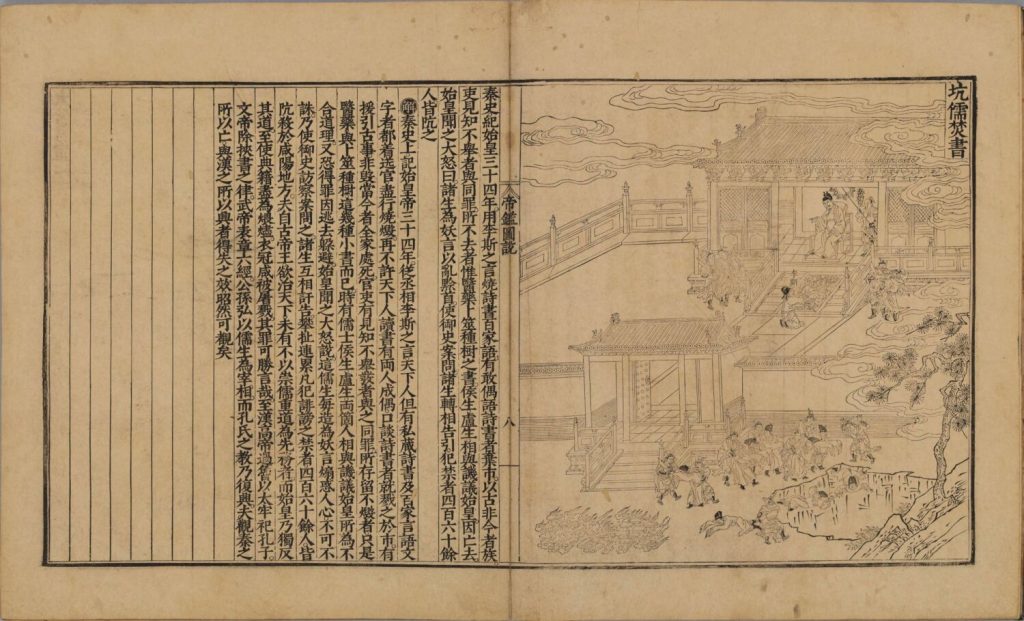 坑儒焚書
秦史紀始皇三十四年用李斯之言燒詩書百家語有敢偶語詩書者棄市以古非今者族
吏見知不舉者與同罪所不去者惟醫藥卜筮種樹之書侯生盧生相與譏議始皇因亡去
始皇聞之大怒曰諸生為妖言以亂黔首使御史案問諸生轉相告引犯禁者四百六十餘
人皆阬之
解秦史上記始皇帝三十四年從丞相李斯之言天下人但有私藏詩書及百家言語文
字者都着送官盡行燒燬再不許天下人讀書有兩人成偶口談詩書者就戮之於市有
援引古事非毀當今者全家處死官吏有見知不舉發者與之同罪所存留不燬者只是
醫藥與卜筮種樹這幾種小書而已時有儒士侯生盧生兩箇人相與譏議始皇所為不
合道理又恐得罪因逃去躲避始皇聞之大怒說這儒生每造為妖言煽惑人心不可不
誅乃使御史訪察案問之諸生互相訐告攀扯連累凡犯誹謗之禁者四百六十餘人皆
阬殺於咸陽地方夫自古帝王欲治天下未有不以崇儒重道為先務者而始皇乃獨反
其道至使典籍盡為煨燼衣冠咸被屠戮其罪可勝言哉至漢高帝過魯以太牢祀孔子
文帝除挾書之律武帝表章六經公孫弘以儒生為宰相而孔氏之教乃復興夫觀秦之
所以亡與漢之所以興者得失之效昭然可覩矣
帝鑑圖說
八